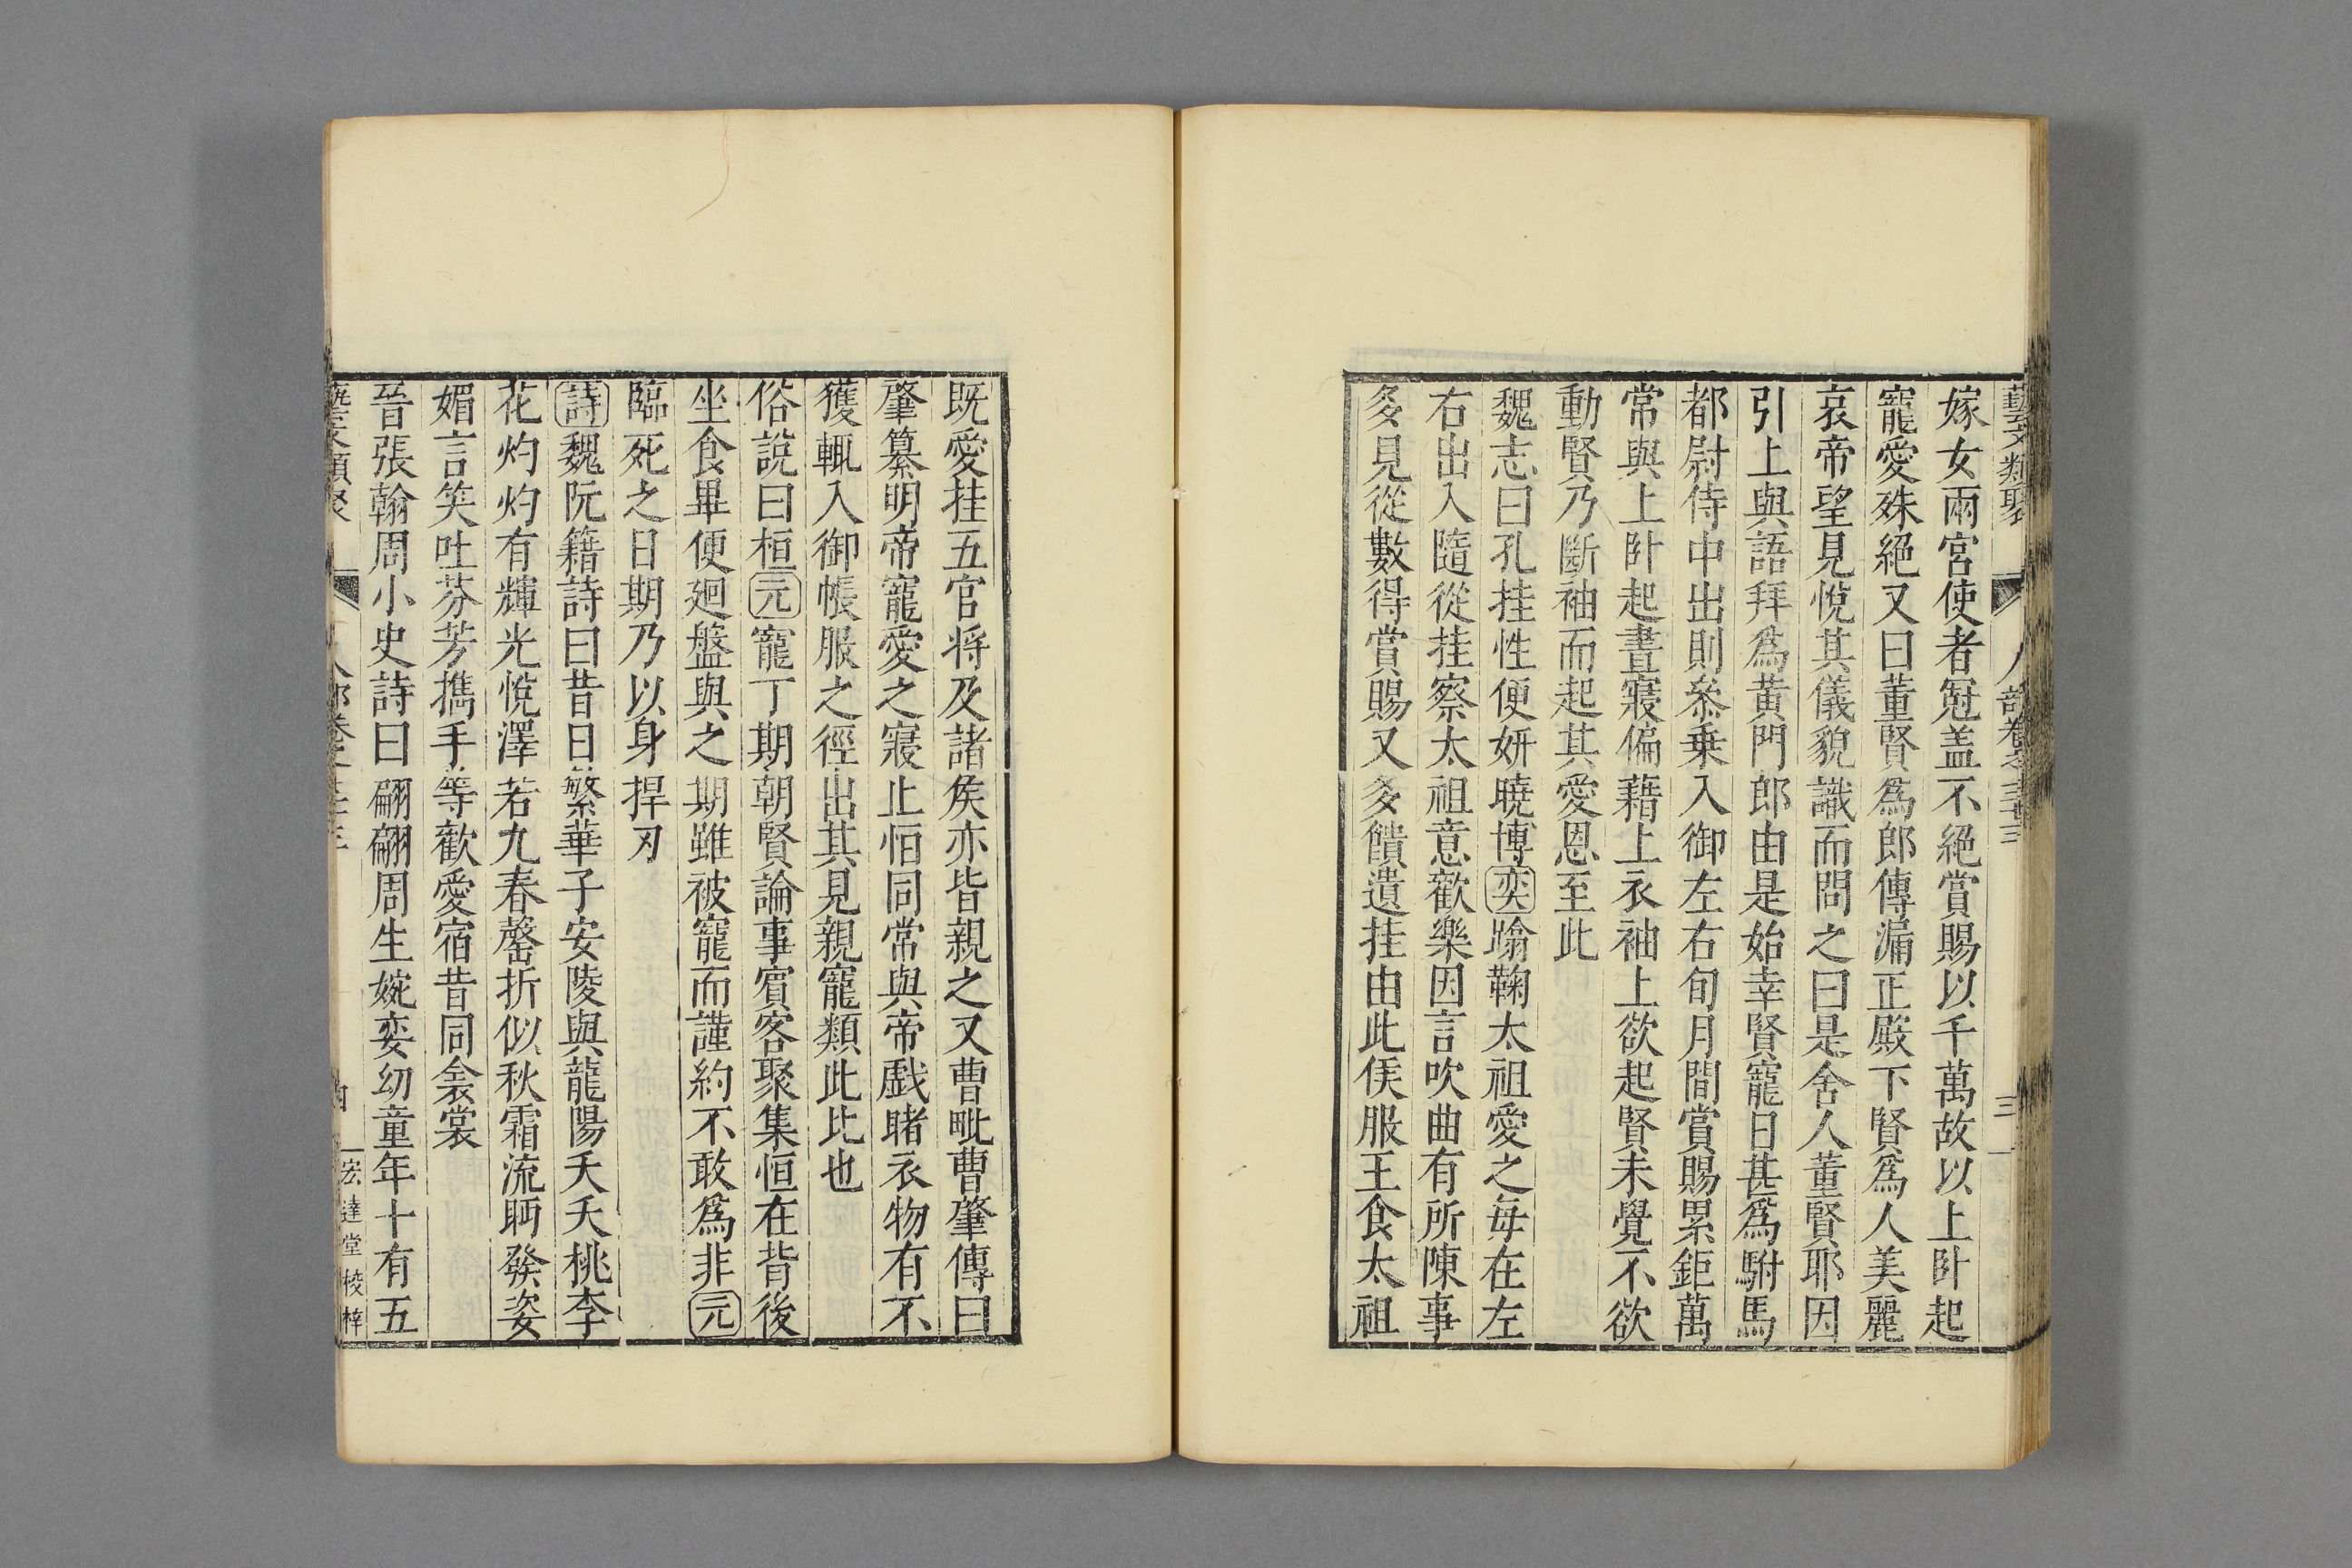 藝文類聚 人部卷之三十三 三
嫁女兩宮使者冠盖不絕賞賜以千萬故以上卧起
寵愛殊絕又曰董賢爲郎傳漏正殿下賢爲人美麗
哀帝望見悅其儀貌識而問之曰是舍人董賢耶因
引上與語拜爲黃門郎由是始幸賢寵日甚爲駙馬
都尉侍中出則叅乗入御左右旬月間賞賜累鉅萬
常與上卧起晝寢偏藉上衣袖上欲起賢未覺不欲
動賢乃斷袖而起其愛恩至此
魏志曰孔桂性便妍曉博奕蹹鞠太祖愛之毎在左
右出入隨從桂察太祖意歡樂因言吹曲有所陳事
多見從數得賞賜又多饋遺桂由此侯服王食太祖
既愛桂五官将及諸侯亦皆親之又曹毗曹肇傳曰
肇纂明帝寵愛之寢止恒同常與帝戯賭衣物有不
獲輒入御帳服之徑出其見親寵類此比也
俗說曰桓元寵丁期朝賢論事賓客聚集恒在背後
坐食畢便廻盤與之期雖被寵而謹約不敢爲非元
臨死之日期乃以身捍刃
詩魏阮籍詩曰昔日繁華子安陵與龍陽夭夭桃李
花灼灼有輝光悅澤若九春罄折似秋霜流眄發姿
媚言笑吐芬芳攜手等歡愛宿昔同衾裳
晉張翰周小史詩曰翩翩周生婉孌幼童年十有五
藝文類聚 人部卷之三十三 四 宏達堂校梓